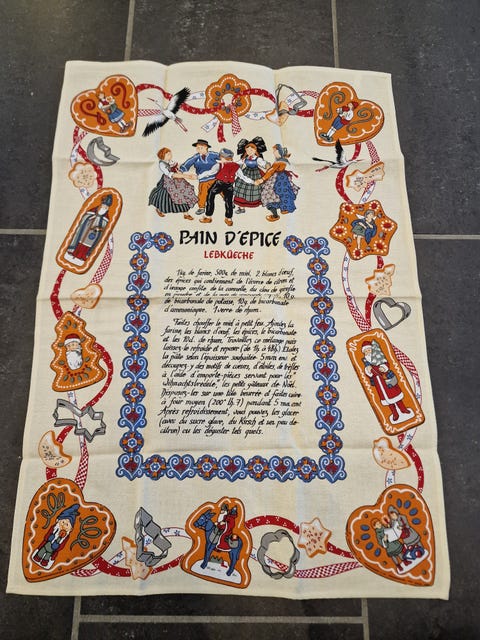 PAIN D'ÉPICE
LEBKÜECHE
1kg de farine, 500g de miel, 2 blancs d'œuf,
des épices qui contiennent de l'écorce de citron et
d'orange confite, de la cannelle, du clou de girofle
en poudre et de la noix de muscade, 10 g
de bicarbonate de potasse, 10g de bicarbonate
d'ammoniaque, 1 verre de rhum.
Faites chauffer le miel à petit feu. Ajoutez la
farine, les blancs d'œuf, les épices, le bicarbonate
et les de rhum. Travaillez ce mélange puis
laissez-le refroidir et reposer (de à 48h). Etalez
la pâte selon l'épaisseur souhaitée 5 mm env. et
découpez-y des motifs de cœurs, d'étoiles, de trèfles
à l'aide d'emporte-pièces servant pour les
"Wihnachtsbredele", les petits gâteaux de Noël.
Disposez-les sur une tôle beurrée et faites cuire
à four moyen (200° th. 7) pendant 5 mn env.
Après refroidissement, vous pouvez les glacer
(avec du sucre glace, du Kirsch et un peu de
citron) ou les déguster tels quels.